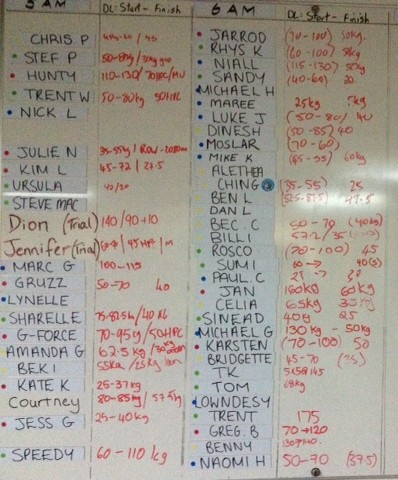 5 AM DL: Start - Finish
CHRIS P
STEF P 50-80kg/30kg
HUNTY 110-130/70
TRENT W 50-80kg
NICK L
JULIE N 35-55kg/Row-2000m
KIM L 45-72/27.5
URSULA 40/20
STEVE MAC
Dion (Trial) 140/90+10
Jennifer (Trial)
MARC G 100-115
GRUZZ 50-70 40
LYNELLE
SHARELLE 75-82.5k/40
G-FORCE 70-95kg/50
AMANDA G 62.5kg/30kg
BEK I 55kg/25kg
KATE K 25-37kg
Courtney 80-85kg/57.5kg
JESS G 25-40kg
SPEEDY 60-110kg
6 AM DL: Start - Finish
JARROD (70-100) 50kg
RHYS K (60-100)
NIALL (115-130) 50kg
SANDY (40-60) 20
MICHAEL H
MAREE 25kg
LUKE J (50-80/40
DINESH (50-85) 40
MOSLAR (70-60)
MIKE K 60kg
ALETHEA
CHING (35-55) 25
BEN L 47.5
DAN L
BEC. C 60-70 (40kg)
BILL I
ROSCO (70-100) 45
SUMI 60→
PAUL. C 25→
JAN 160kg 60kg
CELIA 65kg 35kg
SINEAD 40kg 25
MICHAEL G 130kg - 50kg
KARSTEN (70-100) 50
BRIDGETTE 45-70 (35)
TK
TOM
LOWNDESY
TRENT 175
GREG. B 70→120
BENNY
NAOMI H 50-70 (37.5)